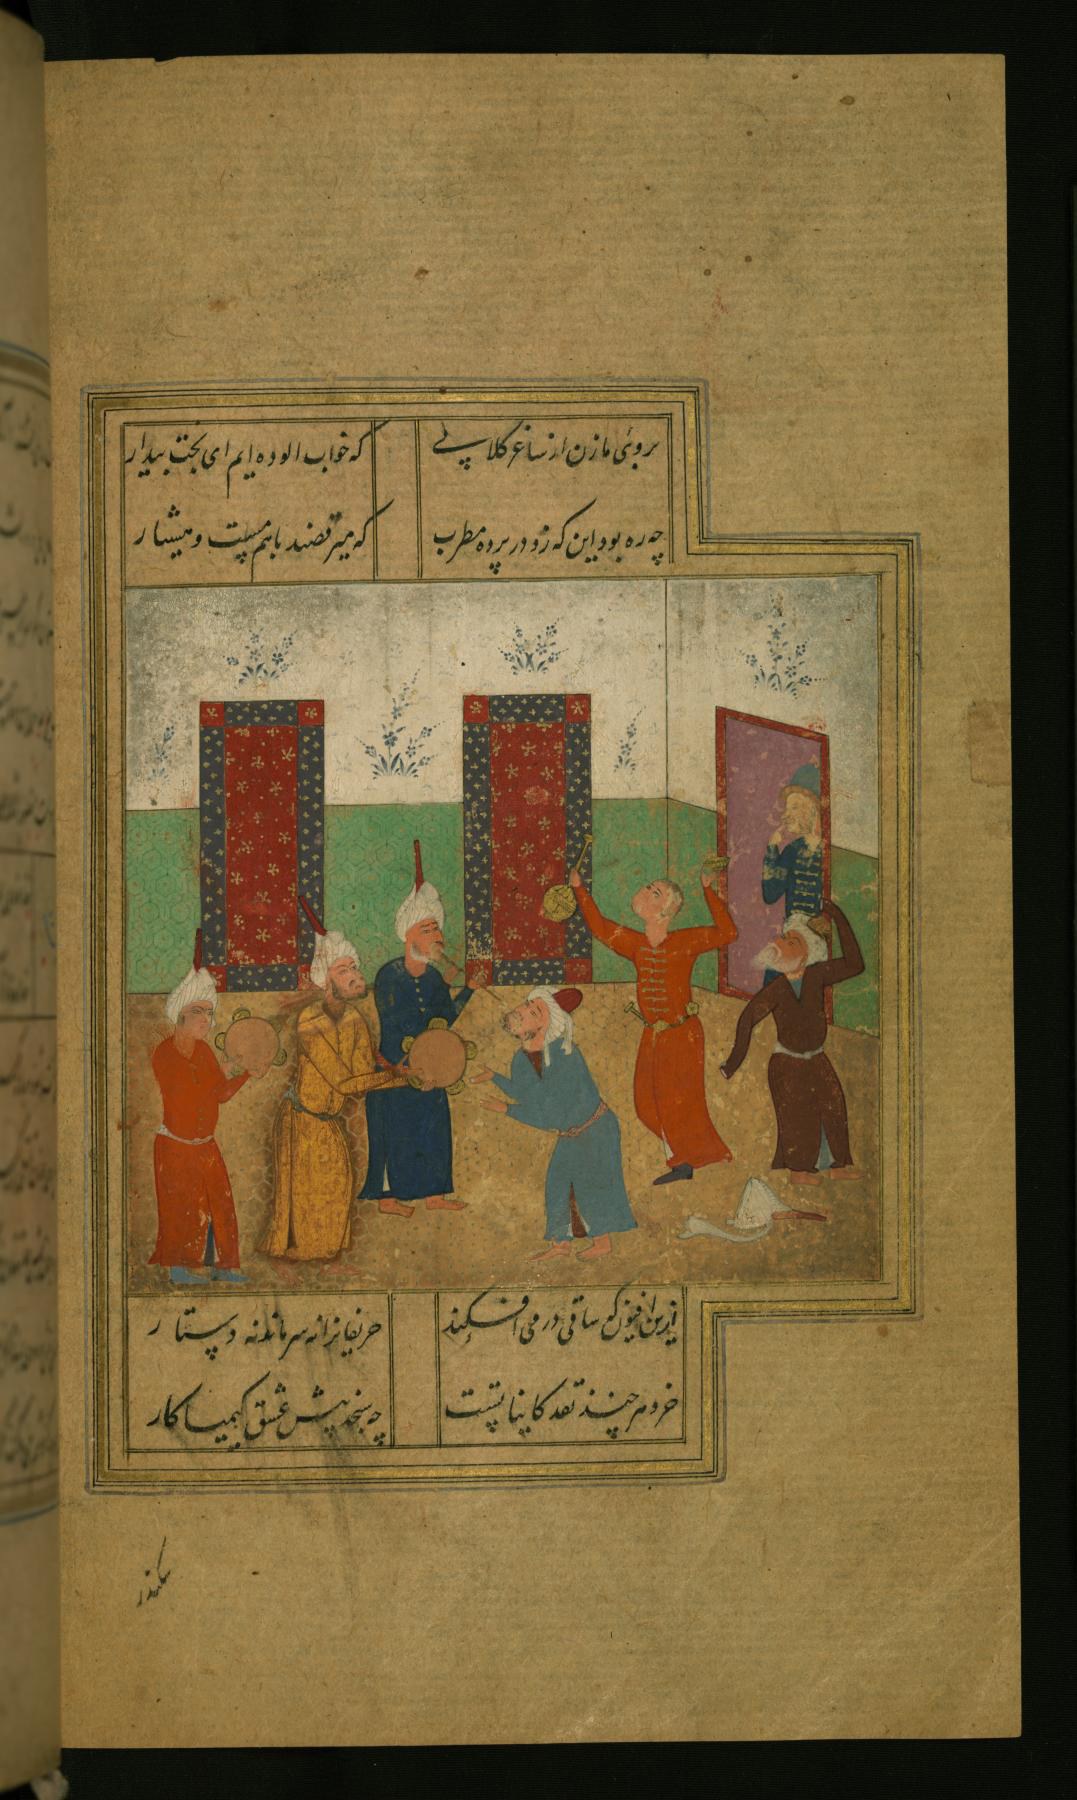 بروئی ما زن از ساغر کلابی که خواب الوده ایم ای بخت بیدار
چه ره بود این که زد در پرده مطرب که میرقصند باهم مست و هشیار
ازین افیون که ساقی در می افکند حریفانرا نه سر ماند نه دستار
خرد هر چند نقد کایناتست چه سنجد پیش عشق کیمیا کار
سکندر